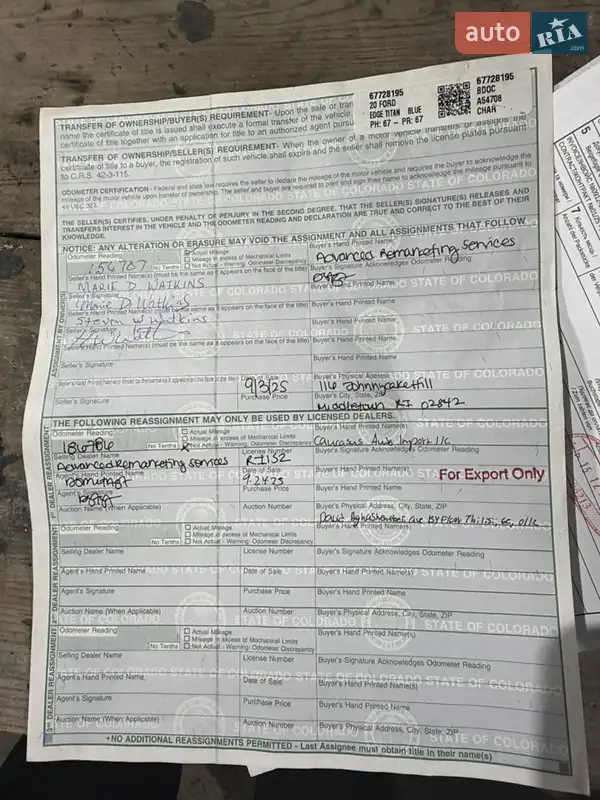 auto RIA .com
67728195
20 FORD
EDGE TITAN BLUE
PH: 67 - PR: 67
67728195
BDOC
A54708
CHAR
TRANSFER OF OWNERSHIP/BUYER(S) REQUIREMENT- Upon the sale or tran
name the certificate of title is issued shall execute a formal transfer of the vehicle,
certificate of title together with an application for title to an authorized agent pursu
TRANSFER OF OWNERSHIP/SELLER(S) REQUIREMENT- When the owner of a motor vehicle transfers or assigns the
certificate of title to a buyer, the registration of such vehicle shall expire and the seller shall remove the license plates pursuant
to C.R.S. 42-3-115.
STATE OF COLORADO
ODOMETER CERTIFICATION - Federal and state law requires the seller to declare the mileage of the motor vehicle and requires the buyer to acknowledge the
mileage of the motor vehicle upon transfer of ownership. The seller and buyer are required to print and sign their name to acknowledge the mileage pursuant to
49 USC 327.
THE SELLER(S) CERTIFIES, UNDER PENALTY OF PERJURY IN THE SECOND DEGREE, THAT THE SELLER(S) SIGNATURE(S) RELEASES AND
TRANSFERS INTEREST IN THE VEHICLE AND THE ODOMETER READING AND DECLARATION ARE TRUE AND CORRECT TO THE BEST OF THEIR
KNOWLEDGE.
NOTICE: ANY ALTERATION OR ERASURE MAY VOID THE ASSIGNMENT AND ALL ASSIGNMENTS THAT FOLLOW
Odometer Reading
No Tenths
Actual Mileage
Mileage in excess of Mechanical Limits
Not Actual - Warning: Odometer Discrepancy
Buyer's Hand Printed Name
Advanced Remarketing Services
Seller's Hand Printed Name(s) (must be the same as it appears on the face of the title)
MARIE D WATKINS
Buyer's Signature Acknowledges Odometer Reading
Seller's Signature
Marie D Watkins
Buyer's Hand Printed Name
Seller's Hand Printed Name(s) (must be the same as it appears on the face of the title)
Steven W Watkins
Seller's Signature
Buyer's Hand Printed Name
Seller's Hand Printed Name(s) (must be the same as it appears on the face of the title)
Buyer's Hand Printed Name
Seller's Signature
Seller's Hand Printed Name(s) (must be the same as it appears on the face of the title)
Date of Sale
9/3/25
Buyer's Physical Address
116 Johnnycake Hill
Seller's Signature
Purchase Price
Buyer's City, State, Zip
Middletown RI 02842
THE FOLLOWING REASSIGNMENT MAY ONLY BE USED BY LICENSED DEALERS.
1ST DEALER REASSIGNMENT
Odometer Reading
No Tenths
Actual Mileage
Mileage in excess of Mechanical Limits
Not Actual - Warning: Odometer Discrepancy
Buyer's Hand Printed Name(s)
Caucasus Auto Import llc
Selling Dealer Name
Advanced Remarketing Services
License Number
RI152
Buyer's Signature Acknowledges Odometer Reading
Agent's Hand Printed Name
Date of Sale
9.24.25
Buyer's Hand Printed Name(s)
For Export Only
Agent's Signature
Purchase Price
Auction Name (When Applicable)
Auction Number
Buyer's Physical Address, City, State, ZIP
2ND DEALER REASSIGNMENT
Odometer Reading
No Tenths
Actual Mileage
Mileage in excess of Mechanical Limits
Not Actual - Warning: Odometer Discrepancy
Buyer's Hand Printed Name(s)
Selling Dealer Name
License Number
Buyer's Signature Acknowledges Odometer Reading
Agent's Hand Printed Name
Date of Sale
Buyer's Hand Printed Name(s)
Agent's Signature
Purchase Price
Auction Name (When Applicable)
Auction Number
Buyer's Physical Address, City, State, ZIP
3RD DEALER REASSIGNMENT
Odometer Reading
No Tenths
Actual Mileage
Mileage in excess of Mechanical Limits
Not Actual - Warning: Odometer Discrepancy
Buyer's Hand Printed Name(s)
Selling Dealer Name
License Number
Buyer's Signature Acknowledges Odometer Reading
Agent's Hand Printed Name
Date of Sale
Buyer's Hand Printed Name(s)
Agent's Signature
Purchase Price
Auction Name (When Applicable)
Auction Number
Buyer's Physical Address, City, State, ZIP
*NO ADDITIONAL REASSIGNMENTS PERMITTED - Last Assignee must obtain title in their name(s)